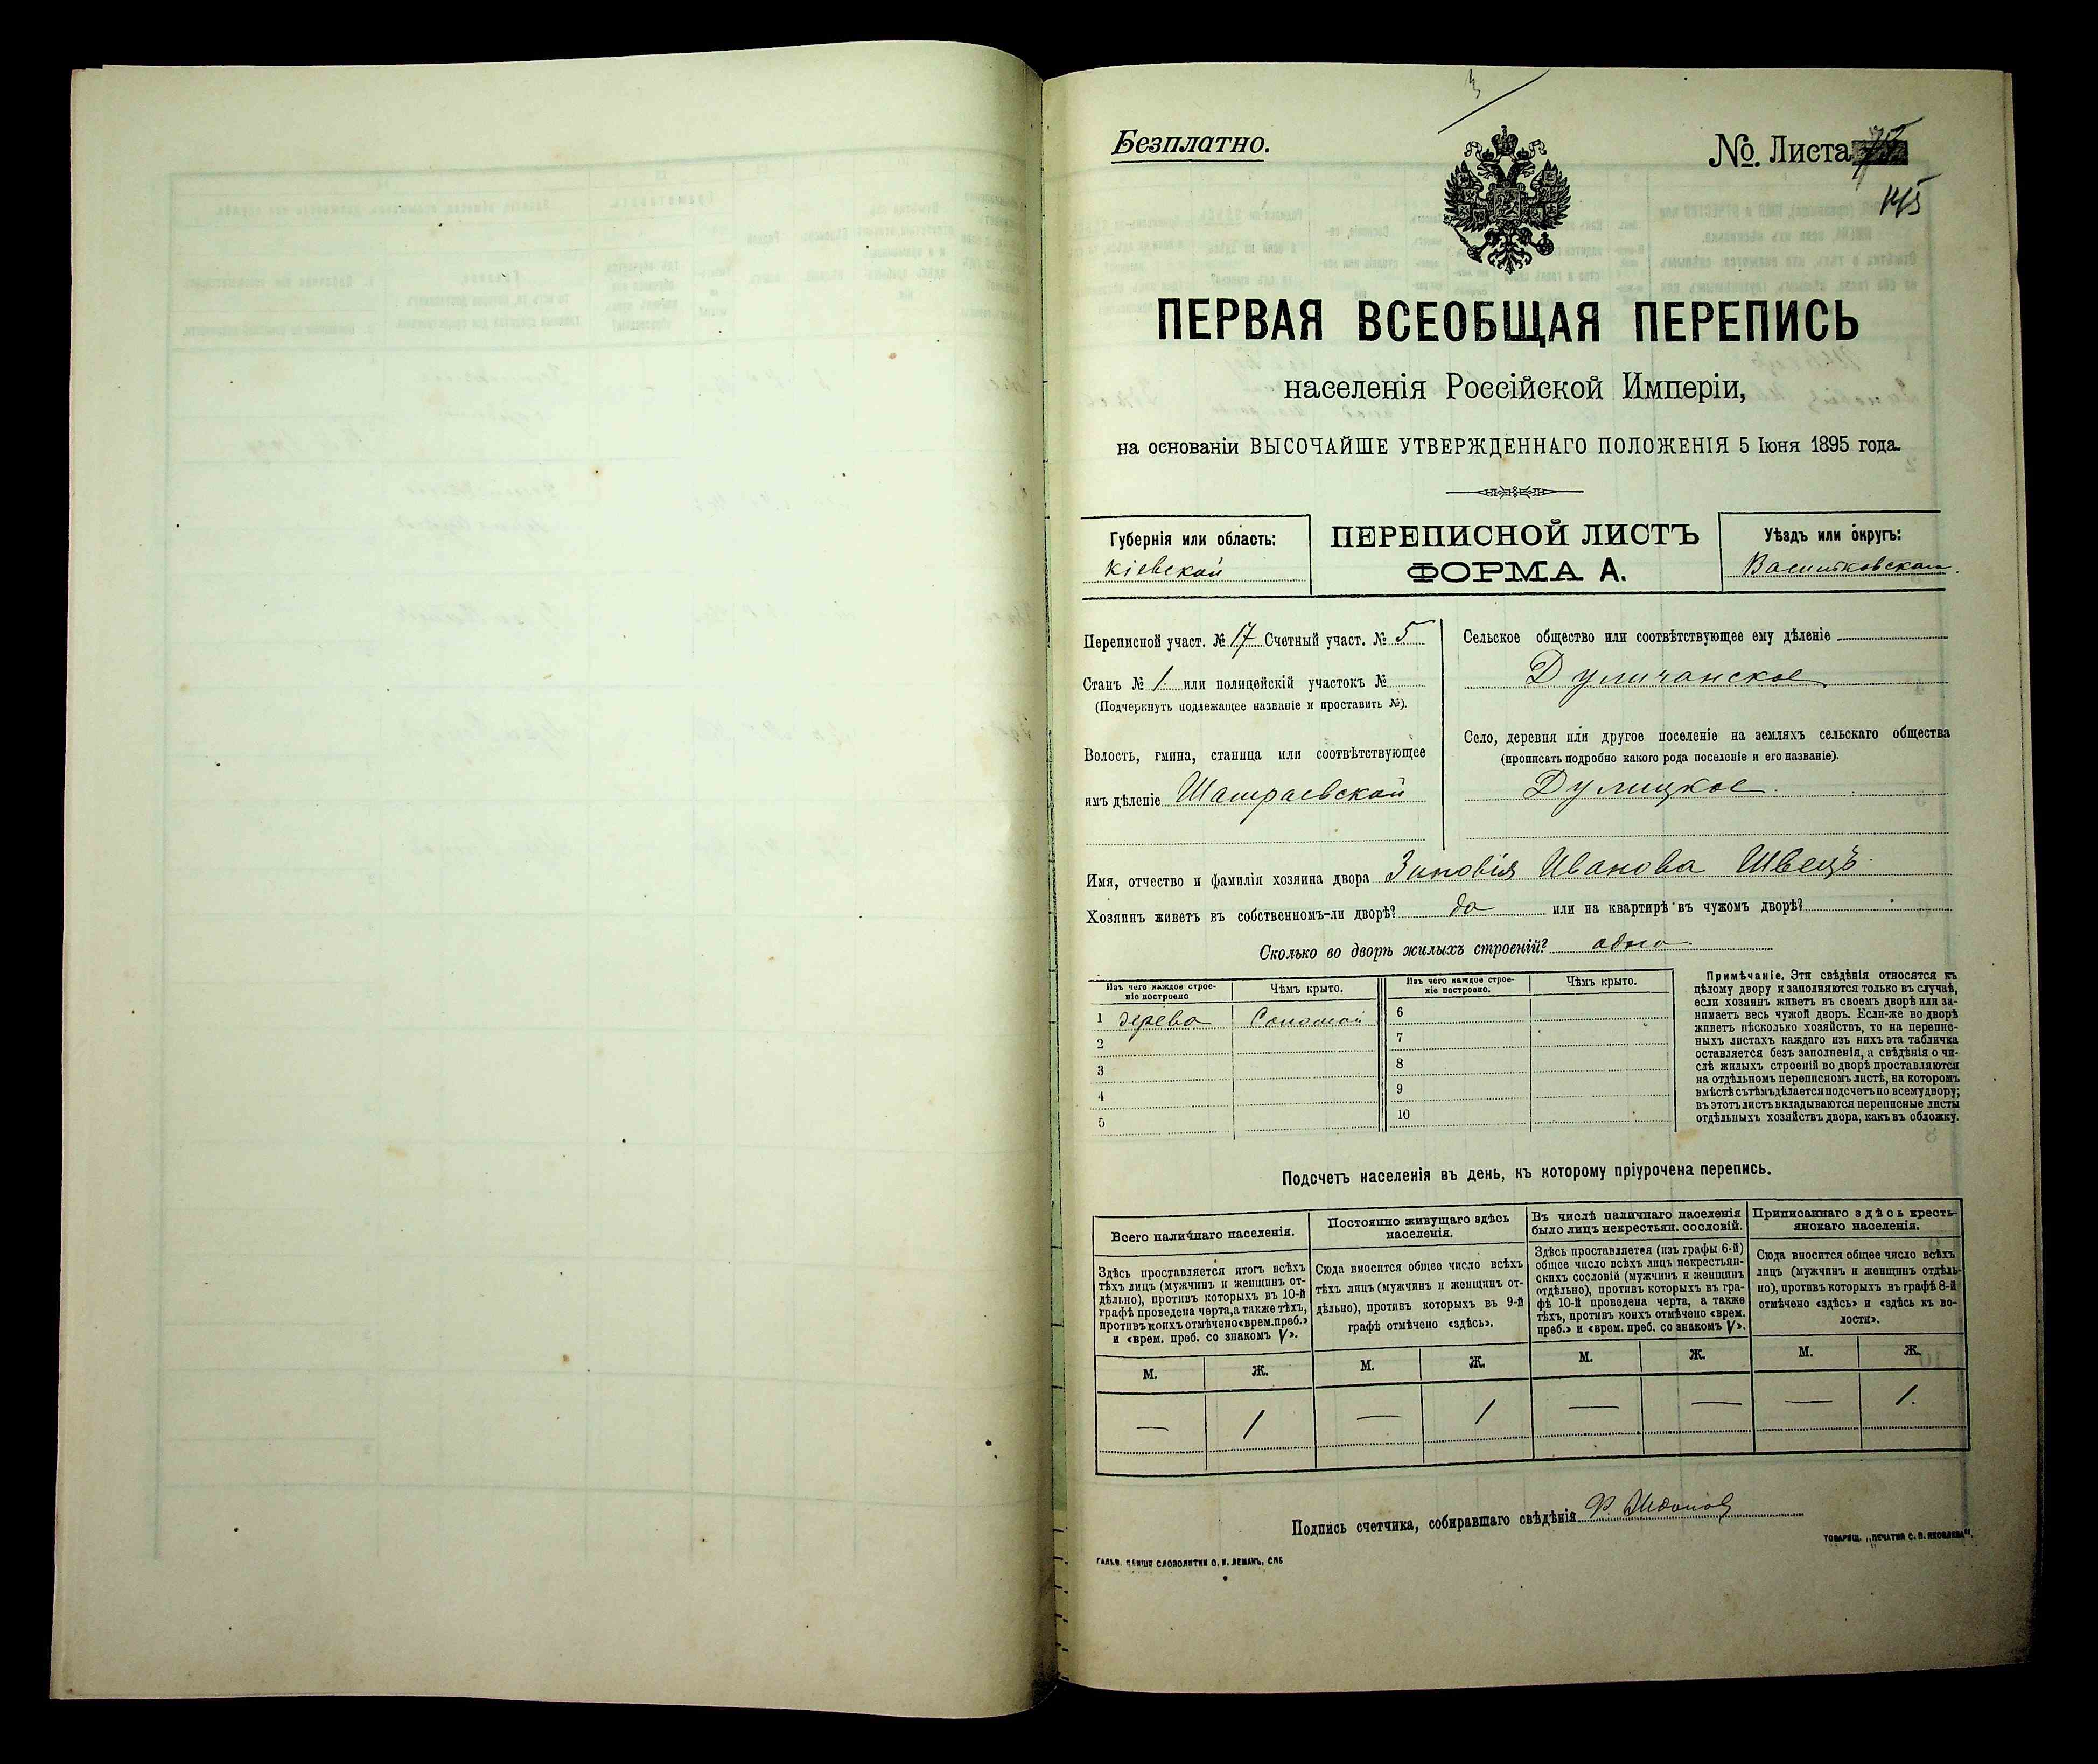 Безплатно.
№. Листа
145
ПЕРВАЯ ВСЕОБЩАЯ ПЕРЕПИСЬ
населенія Россійской Имперіи,
на основаніи ВЫСОЧАЙШЕ УТВЕРЖДЕННАГО ПОЛОЖЕНІЯ 5 Іюня 1895 года.
Губернія или область:
Кіевской
ПЕРЕПИСНОЙ ЛИСТЪ
ФОРМА А.
Уѣздъ или округъ:
Васильковском
Переписной участ. № 17 Счетный участ. № 5
Станъ № 1. или полицейскій участокъ №
(Подчеркнуть подлежащее названіе и проставить №).
Волость, гмина, станица или соотвѣтствующее
имъ дѣленіе Шамраевской
Сельское общество или соотвѣтствующее ему дѣленіе
Дуличанское
Село, деревня или другое поселеніе на земляхъ сельскаго общества
(прописать подробно какого рода поселеніе и его названіе).
Дулицкое.
Имя, отчество и фамилія хозяина двора Зиновія Иванова Швецъ
Хозяинъ живетъ въ собственномъ-ли дворѣ? да или на квартирѣ въ чужомъ дворѣ?
Сколько во дворѣ жилыхъ строеній? одно.
Изъ чего каждое строе-
ніе построено
Чѣмъ крыто.
Изъ чего каждое строе-
ніе построено.
Чѣмъ крыто.
1 дерева Соломой
2
3
4
5
6
7
8
9
10
Примѣчаніе. Эти свѣдѣнія относятся къ
цѣлому двору и заполняются только въ случаѣ,
если хозяинъ живетъ въ своемъ дворѣ или за-
нимаетъ весь чужой дворъ. Если-же во дворѣ
живетъ нѣсколько хозяйствъ, то на перепис-
ныхъ листахъ каждаго изъ нихъ эта табличка
оставляется безъ заполненія, а свѣдѣнія о чи-
слѣ жилыхъ строеній во дворѣ проставляются
на отдѣльномъ переписномъ листѣ, на которомъ
вмѣстѣ съ тѣмъ дѣлается подсчетъ по всему двору;
въ этотъ листъ вкладываются переписные листы
отдѣльныхъ хозяйствъ двора, какъ въ обложку.
Подсчетъ населенія въ день, къ которому пріурочена перепись.
Всего наличнаго населенія.
Здѣсь проставляется итогъ всѣхъ
тѣхъ лицъ (мужчинъ и женщинъ от-
дѣльно), противъ которыхъ въ 10-й
графѣ проведена черта, а также тѣхъ,
противъ коихъ отмѣчено «врем. преб.»
и «врем. преб. со знакомъ V».
М. Ж.
— 1
Постоянно живущаго здѣсь
населенія.
Сюда вносится общее число всѣхъ
тѣхъ лицъ (мужчинъ и женщинъ от-
дѣльно), противъ которыхъ въ 9-й
графѣ отмѣчено «здѣсь».
М. Ж.
— 1
Въ числѣ наличнаго населенія
было лицъ некрестьян. сословій.
Здѣсь проставляется (изъ графы 6-й)
общее число всѣхъ лицъ некрестьян-
скихъ сословій (мужчинъ и женщинъ
отдѣльно), противъ которыхъ въ гра-
фѣ 10-й проведена черта, а также
тѣхъ, противъ коихъ отмѣчено «врем.
преб.» и «врем. преб. со знакомъ V».
М. Ж.
— —
Приписаннаго здѣсь кресть-
янскаго населенія.
Сюда вносится общее число всѣхъ
лицъ (мужчинъ и женщинъ отдѣль-
но), противъ которыхъ въ графѣ 8-й
отмѣчено «здѣсь» и «здѣсь къ во-
лости».
М. Ж.
— 1.
Подпись счетчика, собиравшаго свѣдѣнія
ТОВАРИЩ. „ПЕЧАТНЯ С. П. ЯКОВЛЕВА".
ГАЛЬВ. КЛИШЕ СЛОВОЛИТНИ О. И. ЛЕМАНЪ, СПБ